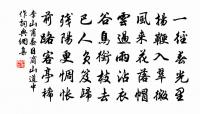 一徑春光裏
揚鞭入翠微
風來花落帽
雲過雨沾衣
谷鳥銜枝去
巴人負笈歸
殘陽更惆悵
前路客亭稀
李山甫春日商山道中
作詞典網集